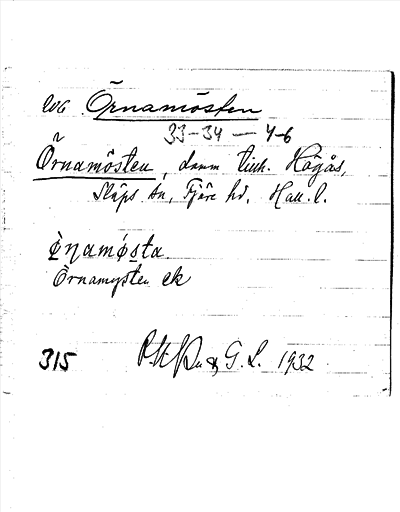 Örnamösten
33-34 — 4-6
Örnamösten, damm tillh. Högås,
Släps sn, Fjäre hd. Hall. l.
Örnamysten ek
315 & G. L. 1932